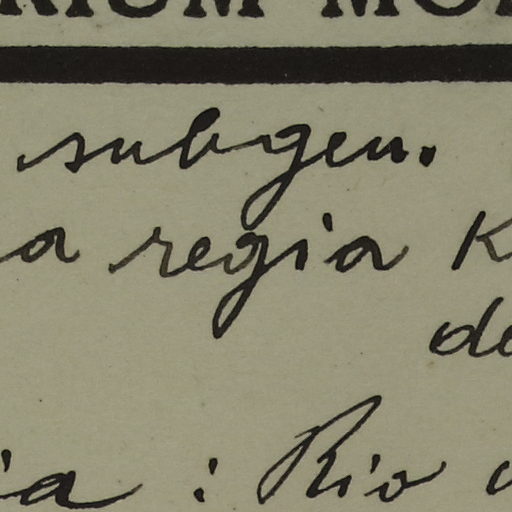 RIUM MO
subgen.
a regia K
de
ia : Rio